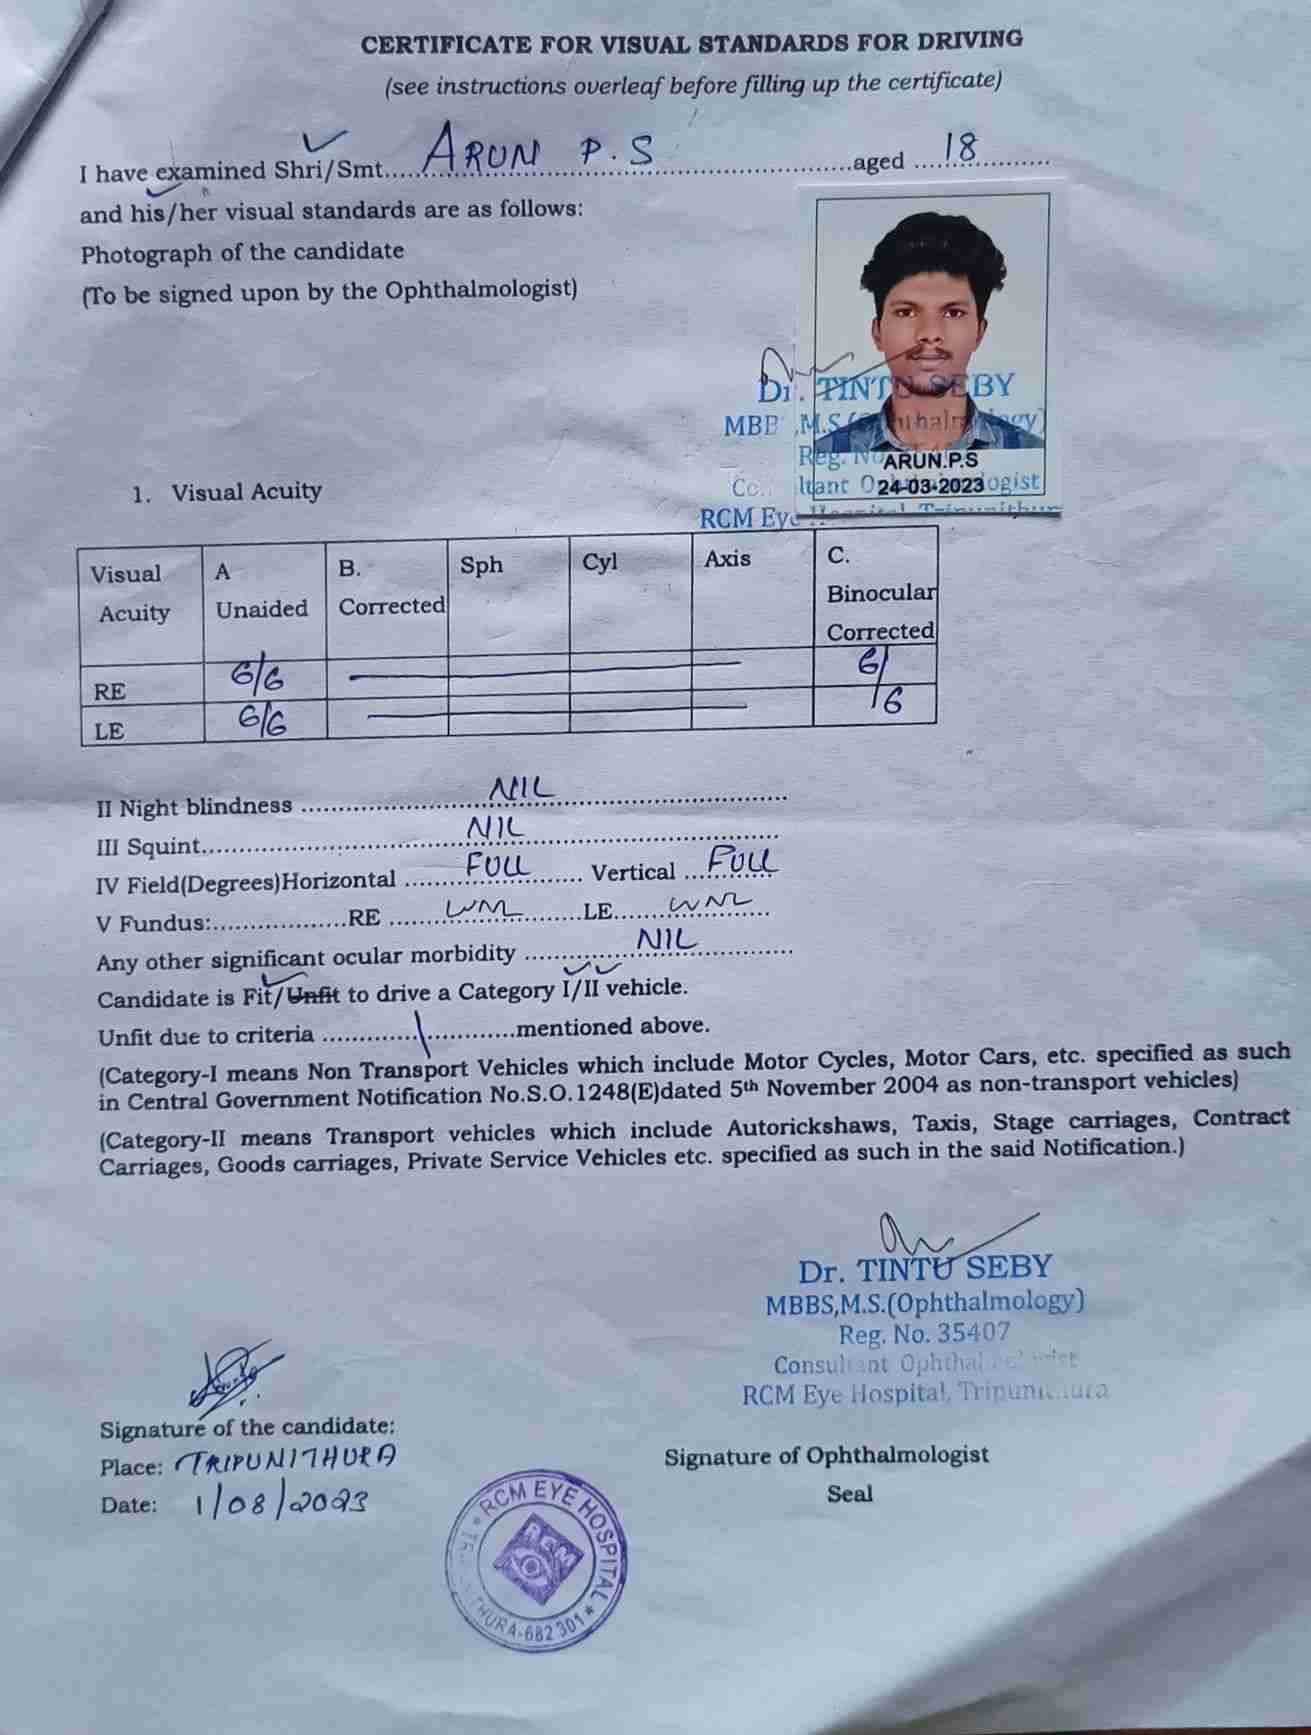 CERTIFICATE FOR VISUAL STANDARDS FOR DRIVING
(see instructions overleaf before filling up the certificate)
I have examined Shri/Smt.....ARUN P.S.....aged ....18....
and his/her visual standards are as follows:
Photograph of the candidate
(To be signed upon by the Ophthalmologist)
Dr. TINTU SEBY
MBB ,M.S.
Reg. No
ARUN.P.S
24-03-2023
RCM Eye
1. Visual Acuity
Visual Acuity A Unaided B. Corrected Sph Cyl Axis C. Binocular Corrected
RE 6/6 6/
LE 6/6 /6
II Night blindness ..... NIL .....
III Squint..... NIL .....
IV Field(Degrees)Horizontal ..... FULL ..... Vertical ..... FULL
V Fundus:..........RE ..... WNL .....LE..... WNL .....
Any other significant ocular morbidity ..... NIL .....
Candidate is Fit/Unfit to drive a Category I/II vehicle.
Unfit due to criteria .......\.......mentioned above.
(Category-I means Non Transport Vehicles which include Motor Cycles, Motor Cars, etc. specified as such
in Central Government Notification No.S.O.1248(E)dated 5th November 2004 as non-transport vehicles)
(Category-II means Transport vehicles which include Autorickshaws, Taxis, Stage carriages, Contract
Carriages, Goods carriages, Private Service Vehicles etc. specified as such in the said Notification.)
Dr. TINTU SEBY
MBBS,M.S.(Ophthalmology)
Reg. No. 35407
Consultant Ophthalmologist
RCM Eye Hospital, Tripunithura
Signature of the candidate:
Place: TRIPUNITHURA
Date: 1/08/2023
Signature of Ophthalmologist
Seal
RCM EYE HOSPITAL
THURA-682 301
RCM